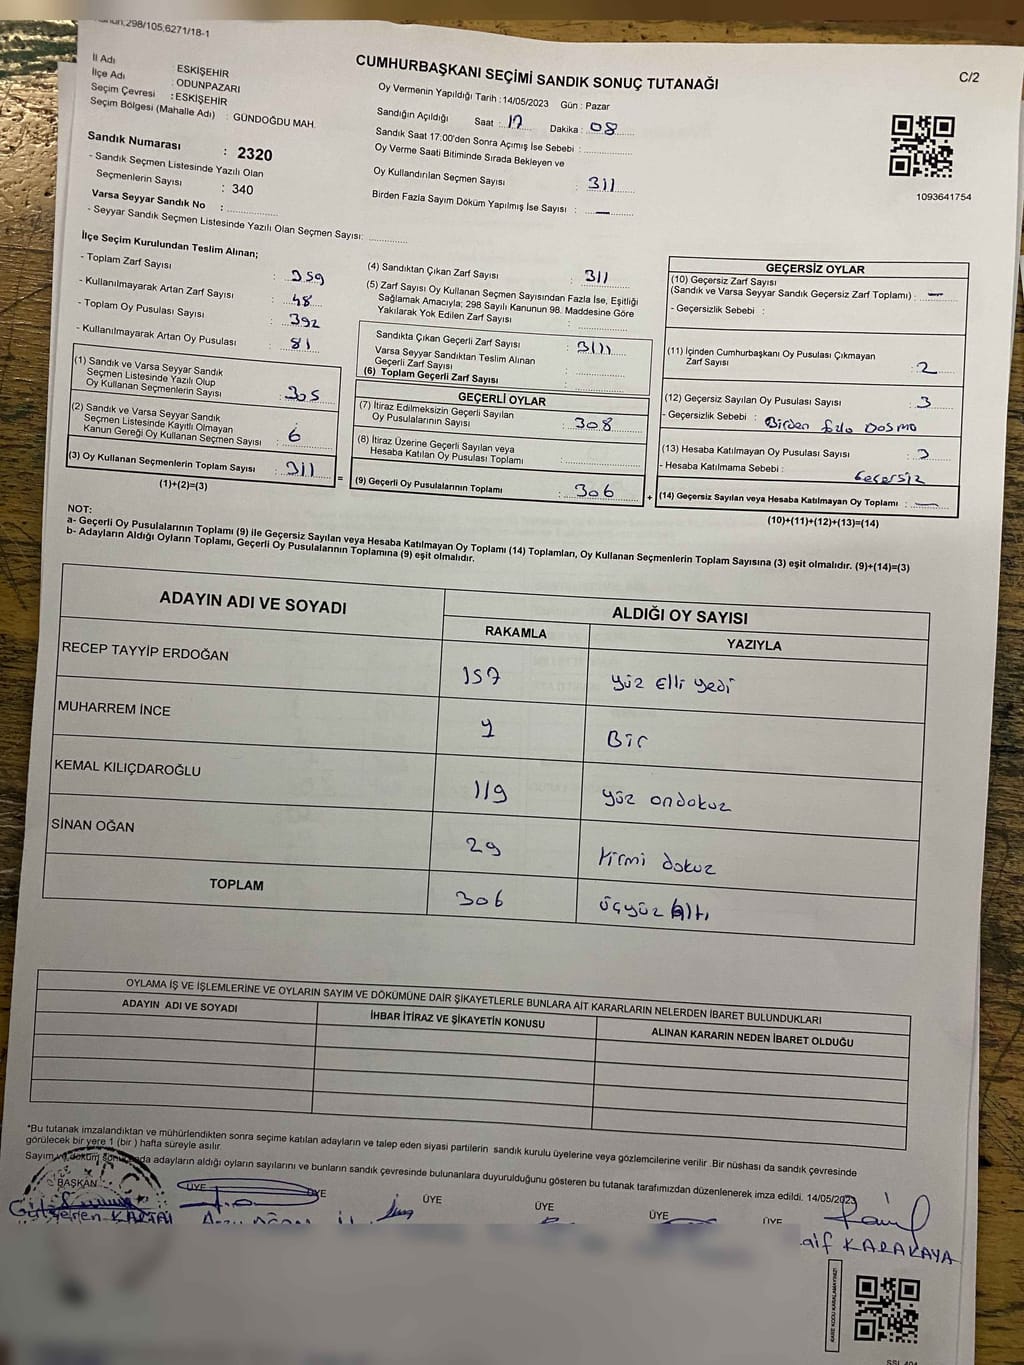 298/105,6271/18-1
CUMHURBAŞKANI SEÇİMİ SANDIK SONUÇ TUTANAĞI
C/2
İl Adı : ESKİŞEHİR
İlçe Adı : ODUNPAZARI
Seçim Çevresi : ESKİŞEHİR
Seçim Bölgesi (Mahalle Adı) : GÜNDOĞDU MAH.
Sandık Numarası : 2320
- Sandık Seçmen Listesinde Yazılı Olan
Seçmenlerin Sayısı : 340
Varsa Seyyar Sandık No :
- Seyyar Sandık Seçmen Listesinde Yazılı Olan Seçmen Sayısı:
Oy Vermenin Yapıldığı Tarih : 14/05/2023 Gün : Pazar
Sandığın Açıldığı Saat : 17 Dakika : 08
Sandık Saat 17:00'den Sonra Açımış İse Sebebi :
Oy Verme Saati Bitiminde Sırada Bekleyen ve
Oy Kullandırılan Seçmen Sayısı : 311
Birden Fazla Sayım Döküm Yapılmış İse Sayısı : —
1093641754
İlçe Seçim Kurulundan Teslim Alınan;
- Toplam Zarf Sayısı : 359
- Kullanılmayarak Artan Zarf Sayısı : 48
- Toplam Oy Pusulası Sayısı : 392
- Kullanılmayarak Artan Oy Pusulası : 81
(1) Sandık ve Varsa Seyyar Sandık
Seçmen Listesinde Yazılı Olup
Oy Kullanan Seçmenlerin Sayısı : 305
(2) Sandık ve Varsa Seyyar Sandık
Seçmen Listesinde Kayıtlı Olmayan
Kanun Gereği Oy Kullanan Seçmen Sayısı : 6
(3) Oy Kullanan Seçmenlerin Toplam Sayısı : 311
(1)+(2)=(3)
(4) Sandıktan Çıkan Zarf Sayısı : 311
(5) Zarf Sayısı Oy Kullanan Seçmen Sayısından Fazla İse, Eşitliği
Sağlamak Amacıyla; 298 Sayılı Kanunun 98. Maddesine Göre
Yakılarak Yok Edilen Zarf Sayısı :
Sandıkta Çıkan Geçerli Zarf Sayısı : 311
Varsa Seyyar Sandıktan Teslim Alınan
Geçerli Zarf Sayısı :
(6) Toplam Geçerli Zarf Sayısı :
GEÇERLİ OYLAR
(7) İtiraz Edilmeksizin Geçerli Sayılan
Oy Pusulalarının Sayısı : 308
(8) İtiraz Üzerine Geçerli Sayılan veya
Hesaba Katılan Oy Pusulası Toplamı :
= (9) Geçerli Oy Pusulalarının Toplamı : 306 +
GEÇERSİZ OYLAR
(10) Geçersiz Zarf Sayısı
(Sandık ve Varsa Seyyar Sandık Geçersiz Zarf Toplamı) : —
- Geçersizlik Sebebi :
(11) İçinden Cumhurbaşkanı Oy Pusulası Çıkmayan
Zarf Sayısı : 2
(12) Geçersiz Sayılan Oy Pusulası Sayısı : 3
- Geçersizlik Sebebi : Birden
(13) Hesaba Katılmayan Oy Pusulası Sayısı : 3
- Hesaba Katılmama Sebebi : Geçersiz
(14) Geçersiz Sayılan veya Hesaba Katılmayan Oy Toplamı : —
(10)+(11)+(12)+(13)=(14)
NOT:
a- Geçerli Oy Pusulalarının Toplamı (9) ile Geçersiz Sayılan veya Hesaba Katılmayan Oy Toplamı (14) Toplamları, Oy Kullanan Seçmenlerin Toplam Sayısına (3) eşit olmalıdır. (9)+(14)=(3)
b- Adayların Aldığı Oyların Toplamı, Geçerli Oy Pusulalarının Toplamına (9) eşit olmalıdır.
ADAYIN ADI VE SOYADI
ALDIĞI OY SAYISI
RAKAMLA YAZIYLA
RECEP TAYYİP ERDOĞAN 157 Yüz Elli yedi
MUHARREM İNCE 1 Bir
KEMAL KILIÇDAROĞLU 119 yüz ondokuz
SİNAN OĞAN 29 Yirmi dokuz
TOPLAM 306 üçyüz Altı
OYLAMA İŞ VE İŞLEMLERİNE VE OYLARIN SAYIM VE DÖKÜMÜNE DAİR ŞİKAYETLERLE BUNLARA AİT KARARLARIN NELERDEN İBARET BULUNDUKLARI
ADAYIN ADI VE SOYADI İHBAR İTİRAZ VE ŞİKAYETİN KONUSU ALINAN KARARIN NEDEN İBARET OLDUĞU
*Bu tutanak imzalandıktan ve mühürlendikten sonra seçime katılan adayların ve talep eden siyasi partilerin sandık kurulu üyelerine veya gözlemcilerine verilir .Bir nüshası da sandık çevresinde
görülecek bir yere 1 (bir ) hafta süreyle asılır.
Sayım ve döküm sonucunda adayların aldığı oyların sayılarını ve bunların sandık çevresinde bulunanlara duyurulduğunu gösteren bu tutanak tarafımızdan düzenlenerek imza edildi. 14/05/2023
BAŞKAN ÜYE ÜYE ÜYE ÜYE ÜYE ÜYE
KARAKAYA
KARE KODU KARALAMAYINIZ!